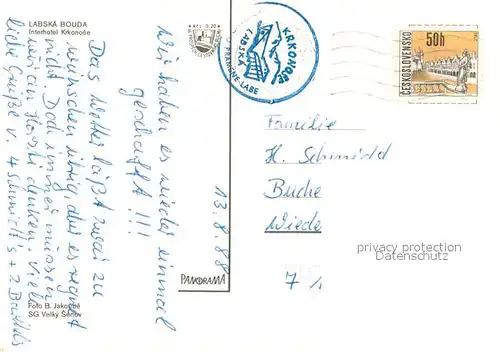 LABSKÁ BOUDA
Interhotel Krkonoše
Wir haben es wieder einmal
geschafft !!!
Das Wetter läßt zwar zu
wünschen übrig, aber es regnet
nicht. Doch immer müssen
wir an Horsti denken. Viele
liebe Grüße v. 4 Schmidt's + 2
13.8.88
Foto B. Jakoubě
SG Velký Šenov
PANORAMA
Kčs 0,20
KRKONOŠE
LABSKÁ
PRAMENE-LABE
50h
ČESKOSLOVENSKO
Familie
H. Schmidd
Buche
Wiede
7
privacy protection
Datenschutz